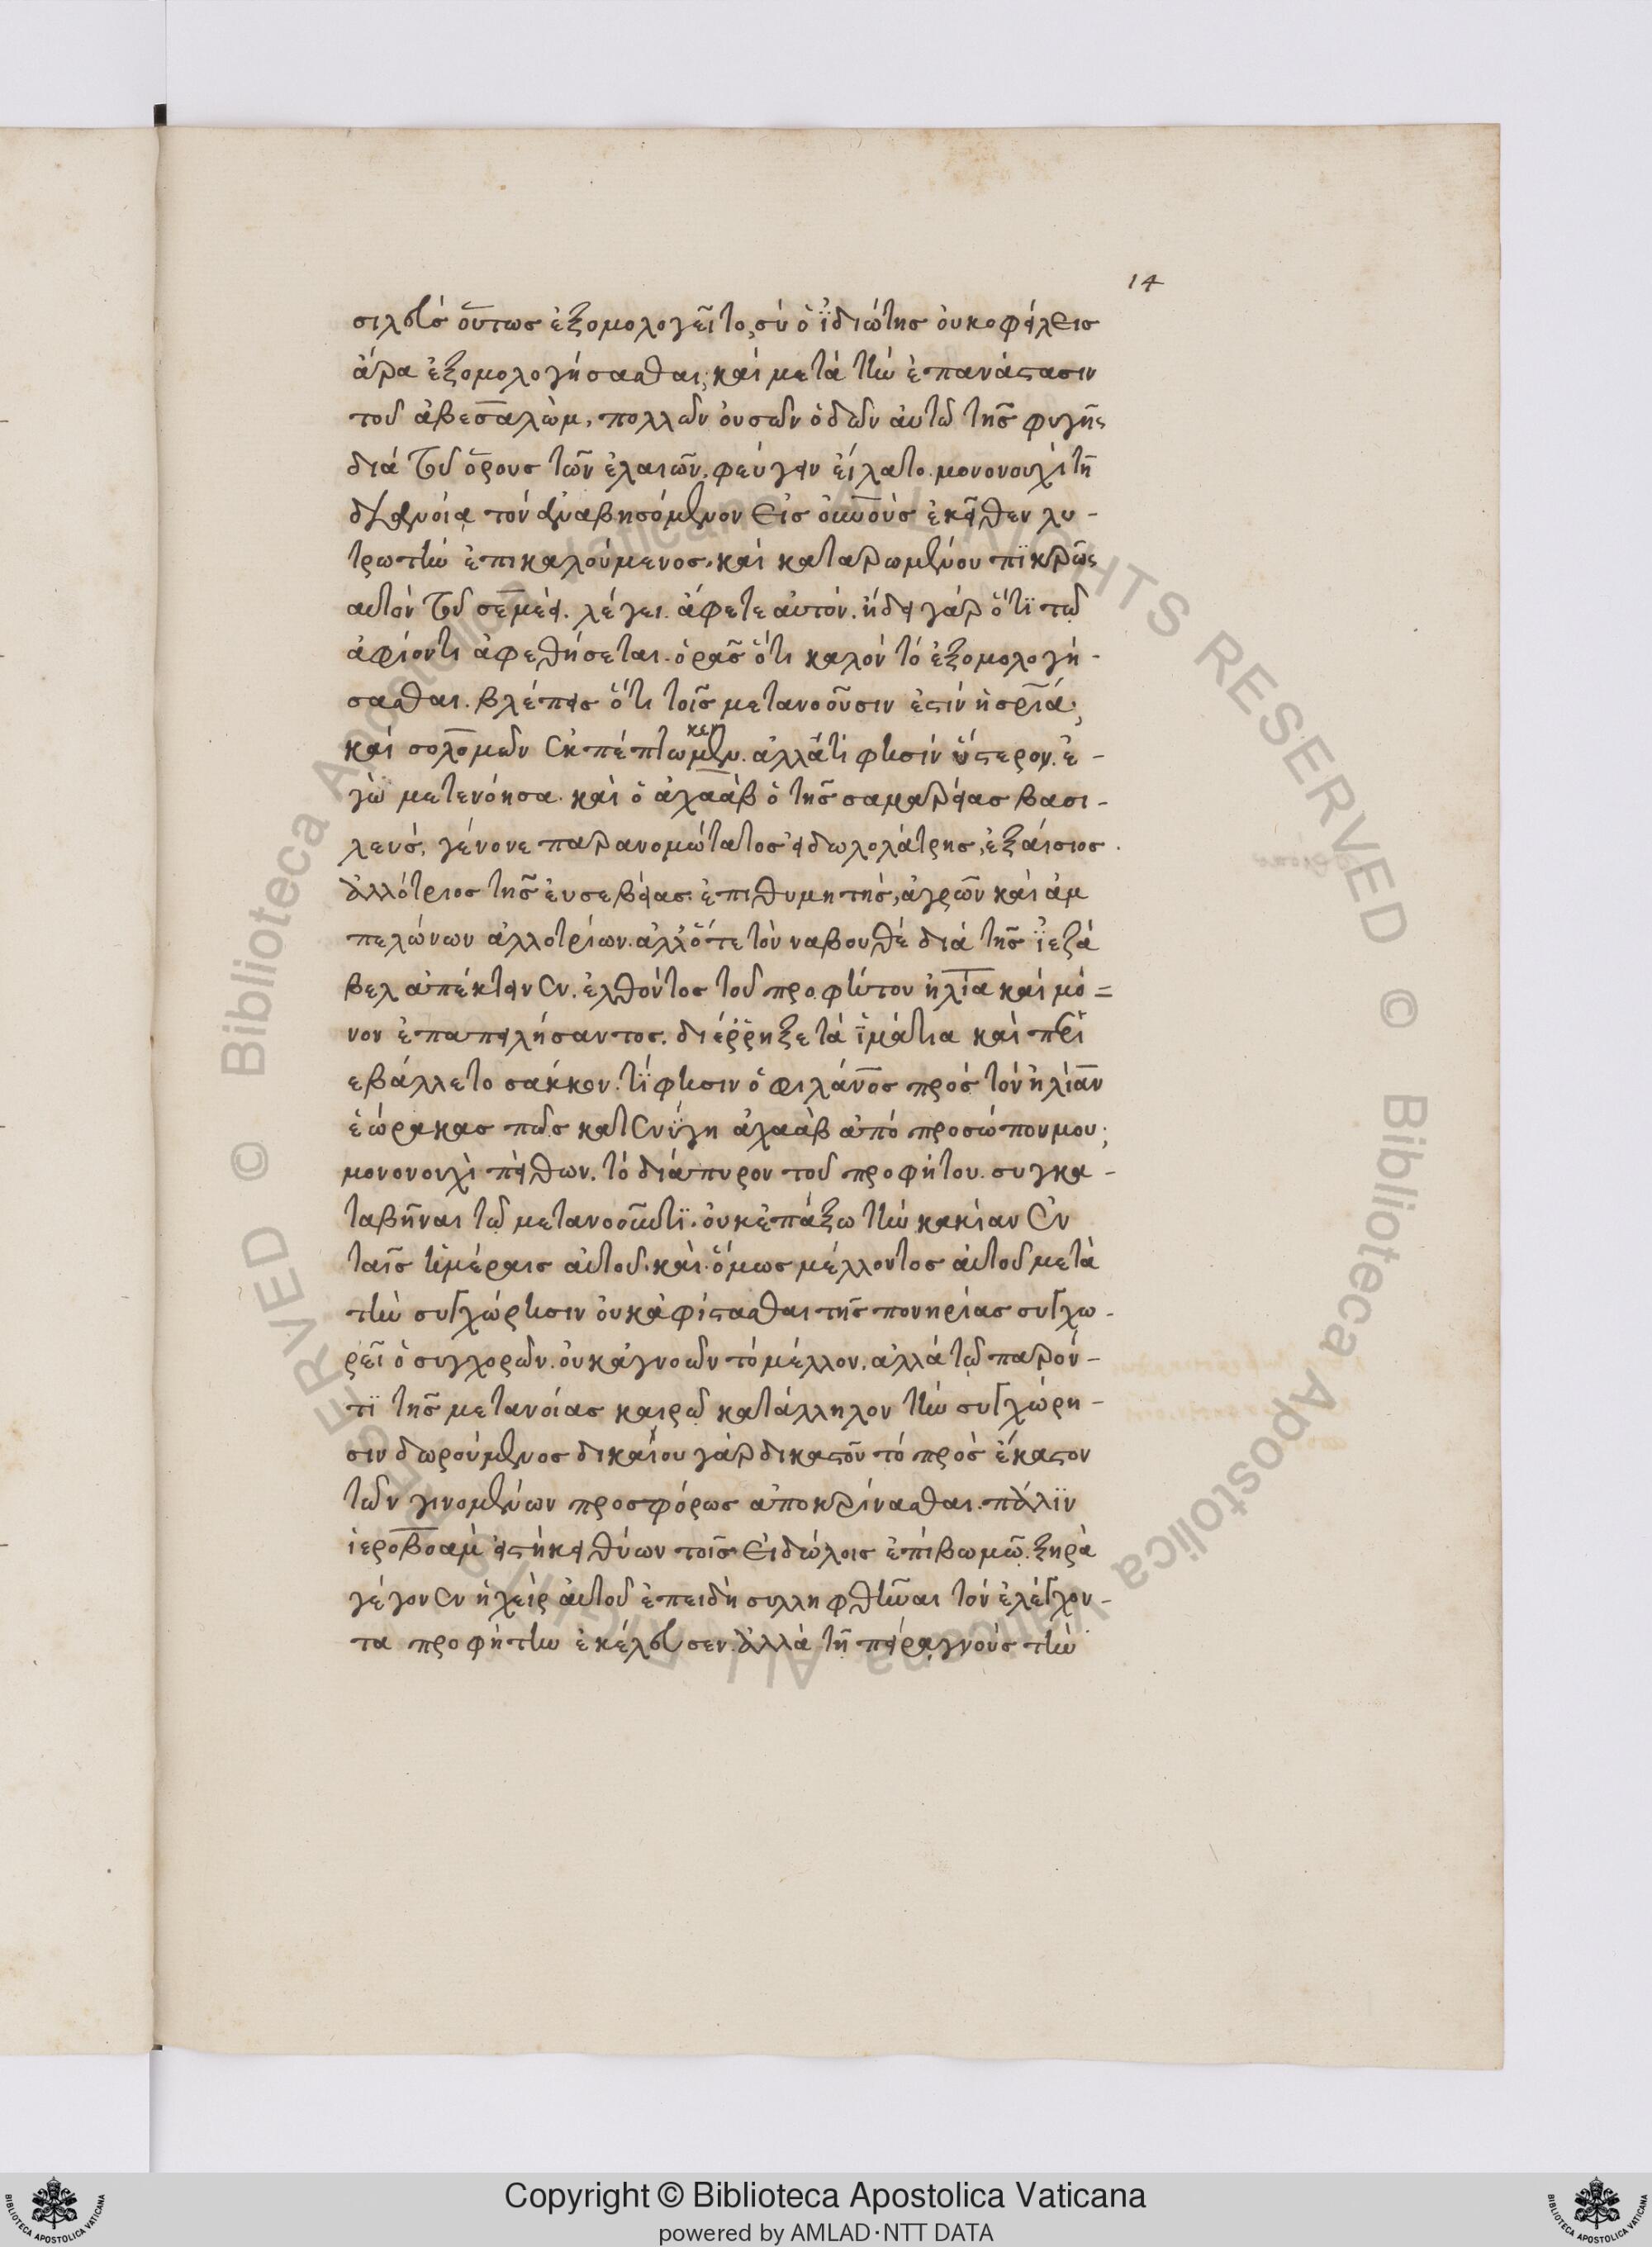 14
σιλεὺς οὕτως ἐξομολογεῖτο, σὺ ὁ ἰδιώτης ὀυκ οφείλεισ
ἄρα ἐξομολογήσασθαι; καὶ μετὰ τὴν ἐπανάστασιν
τοῦ ἀβεσαλὼμ, πολλῶν ὀυσῶν ὁδῶν ἀυτῶ τῆς φυγῆς
διὰ τοῦ ὄρους τῶν ἐλαιῶν. φεύγειν εἵλατο. μονονουχὶ τῆ
διανοία τὸν ἀναβησόμενον εἰς οὐνοὺς ἐκεῖθεν λυ-
τρωτὴν ἐπικαλούμενος. καὶ καταρωμένου πϊκρῶς
αυτὸν τοῦ σεμέει. λέγει. ἄφετε ἀυτόν. ἤδει γὰρ ὅτϊ τῶ
ἀφίοντι ἀφεθήσεται. ὁρᾶς ὅτι καλὸν τὸ ἐξομολογή-
σασθαι. βλέπεις ὅτι τοῖς μετανοοῦσιν ἐστὶν ἡ σρία;
καὶ σολομὼν ἐκπέπτωκεν μὲν. ἀλλὰ τί φησὶν ὕστερον. ἐ-
γὼ μετενόησα. καὶ ὁ ἀχαὰβ ὁ τῆς σαμαρείας βασι-
λευς, γέγονε παρανομώτατος εἰδωλολάτρης, ἐξαίσιος
ἀλλότριος τῆς ἐυσεβείας. ἐπιθυμητής, ἀγρῶν καὶ ἀμ
πελώνων ἀλλοτρίων. ἀλλ' ὅτε τὸν ναβουθὲ διὰ τῆς ϊεζά
βελ ἀπέκτεινεν. ἐλθόντος τοῦ προφήτου ἠλία καὶ μό=
νον ἐπαπειλήσαντος. διέρρηξε τὰ ϊμάτια καὶ πρι
εβάλλετο σάκκον. τί φησιν ὁ φιλάνος πρὸς τὸν ἠλίαν
ἑώρακας πῶς κατενύγη ἀχαὰβ ἀπὸ προσώπου μου;
μονονουχὶ πείθων. τὸ διάπυρον τοῦ προφήτου. συγκα-
ταβῆναι τῶ μετανοοῦντϊ. ὀυκ ἐπάξω τὴν κακίαν ἐν
ταῖς ἡμέραις ἀυτοῦ. καὶ ὅμως μέλλοντος ἀυτοῦ μετὰ
τὴν συγχώρησιν ὀυκ ἀφίστασθαι τῆς πονηρίας συγχω-
ρεῖ ὁ συγχορῶν. ὀυκ ἀγνοῶν τὸ μέλλον. ἀλλὰ τῶ παρόν-
τϊ τῆς μετανοίας καιρῶ κατάλληλον τὴν συγχώρη-
σιν δωρούμενος δικαίου γὰρ δικαστοῦ τὸ πρὸς ἕκαστον
τῶν γινομένων προσφόρως ἀποκρίνασθαι. πάλϊν
ἱεροβοαμ εἱστήκει θύων τοῖς εἰδώλοις ἐπὶ βωμῶ. ξηρὰ
γέγονεν ἡ χεὶρ ἀυτοῦ ἐπειδὴ συλληφθῆναι τὸν ἐλέγχον-
τα προφήτην ἐκέλευσεν. ἀλλὰ τῆ πείρα γνοὺς τὴν